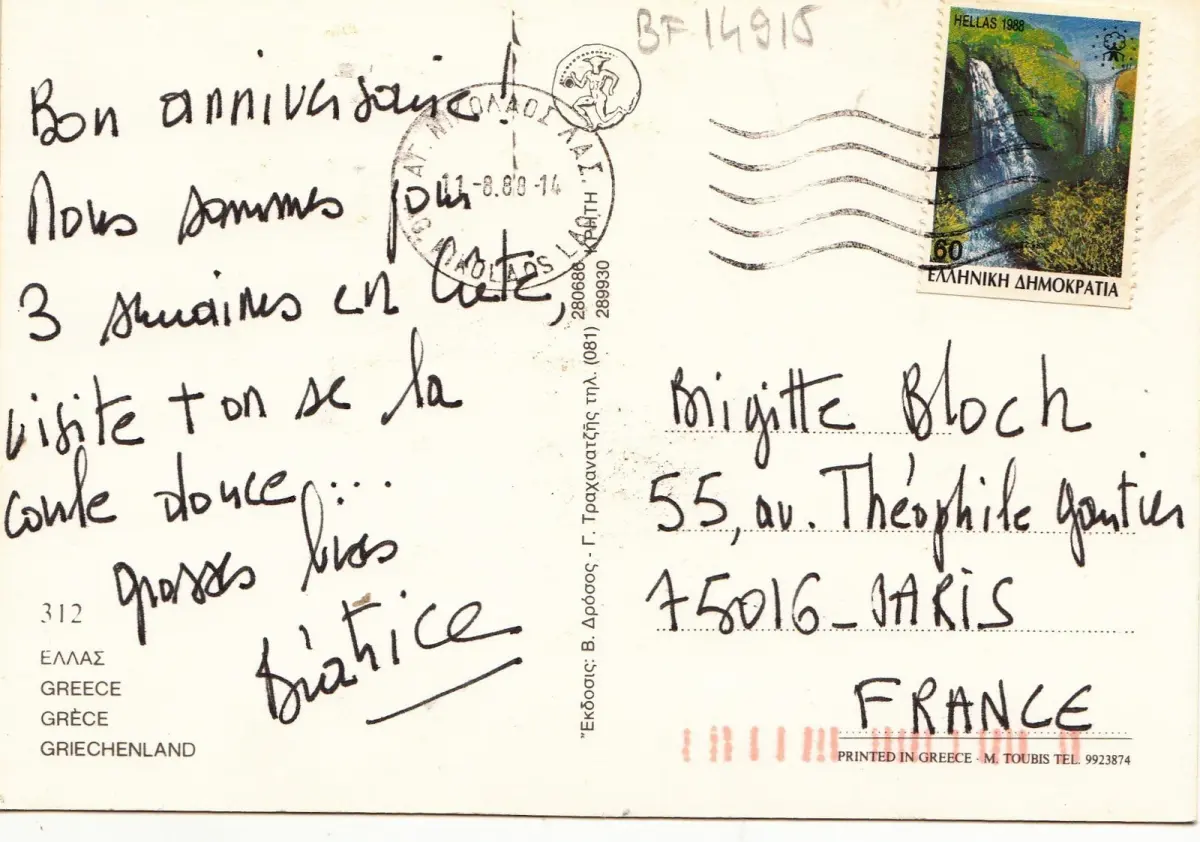 BF 14915
HELLAS 1988
60
ΕΛΛΗΝΙΚΗ ΔΗΜΟΚΡΑΤΙΑ
ΑΓ. ΝΙΚΟΛΑΟΣ ΛΑΣ.
11-8.88-14
AG. NIKOLAOS LAS
Bon anniversaire!
Nous sommes pour
3 semaines en Crète,
visite + on se la
coule douce ...
grosses bises
Béatrice
312
ΕΛΛΑΣ
GREECE
GRÈCE
GRIECHENLAND
"Εκδοσις: Β. Δρόσος - Γ. Τραχανατζής τηλ. (081) 280686 ΚΡΗΤΗ
289930
Brigitte Bloch
55, av. Théophile Gautier
75016_PARIS
FRANCE
PRINTED IN GREECE · M. TOUBIS TEL. 9923874